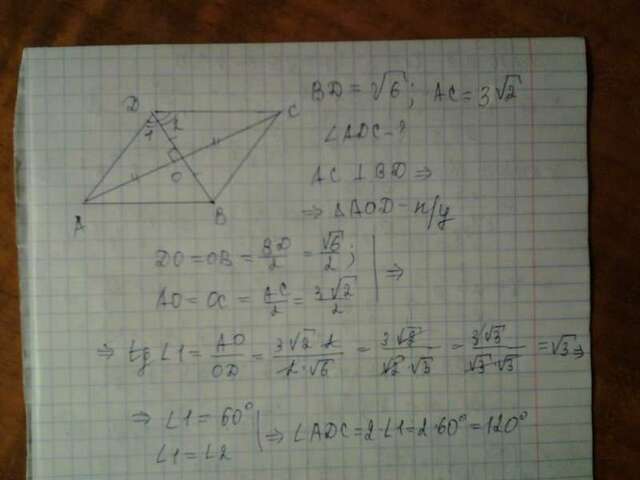 BD = √6; AC = 3√2
∠ADC - ?
AC ⊥ BD ⇒
⇒ ΔAOD - п/у
D
C
1
2
O
A
B
DO = OB = BD/2 = √6/2;
AO = OC = AC/2 = 3√2/2
⇒
⇒ tg ∠1 = AO/OD = 3√2·2/2·√6 = 3√2/√2·√3 = 3√3/√3·√3 = √3 ⇒
⇒ ∠1 = 60°
∠1 = ∠2
⇒ ∠ADC = 2·∠1 = 2·60° = 120°